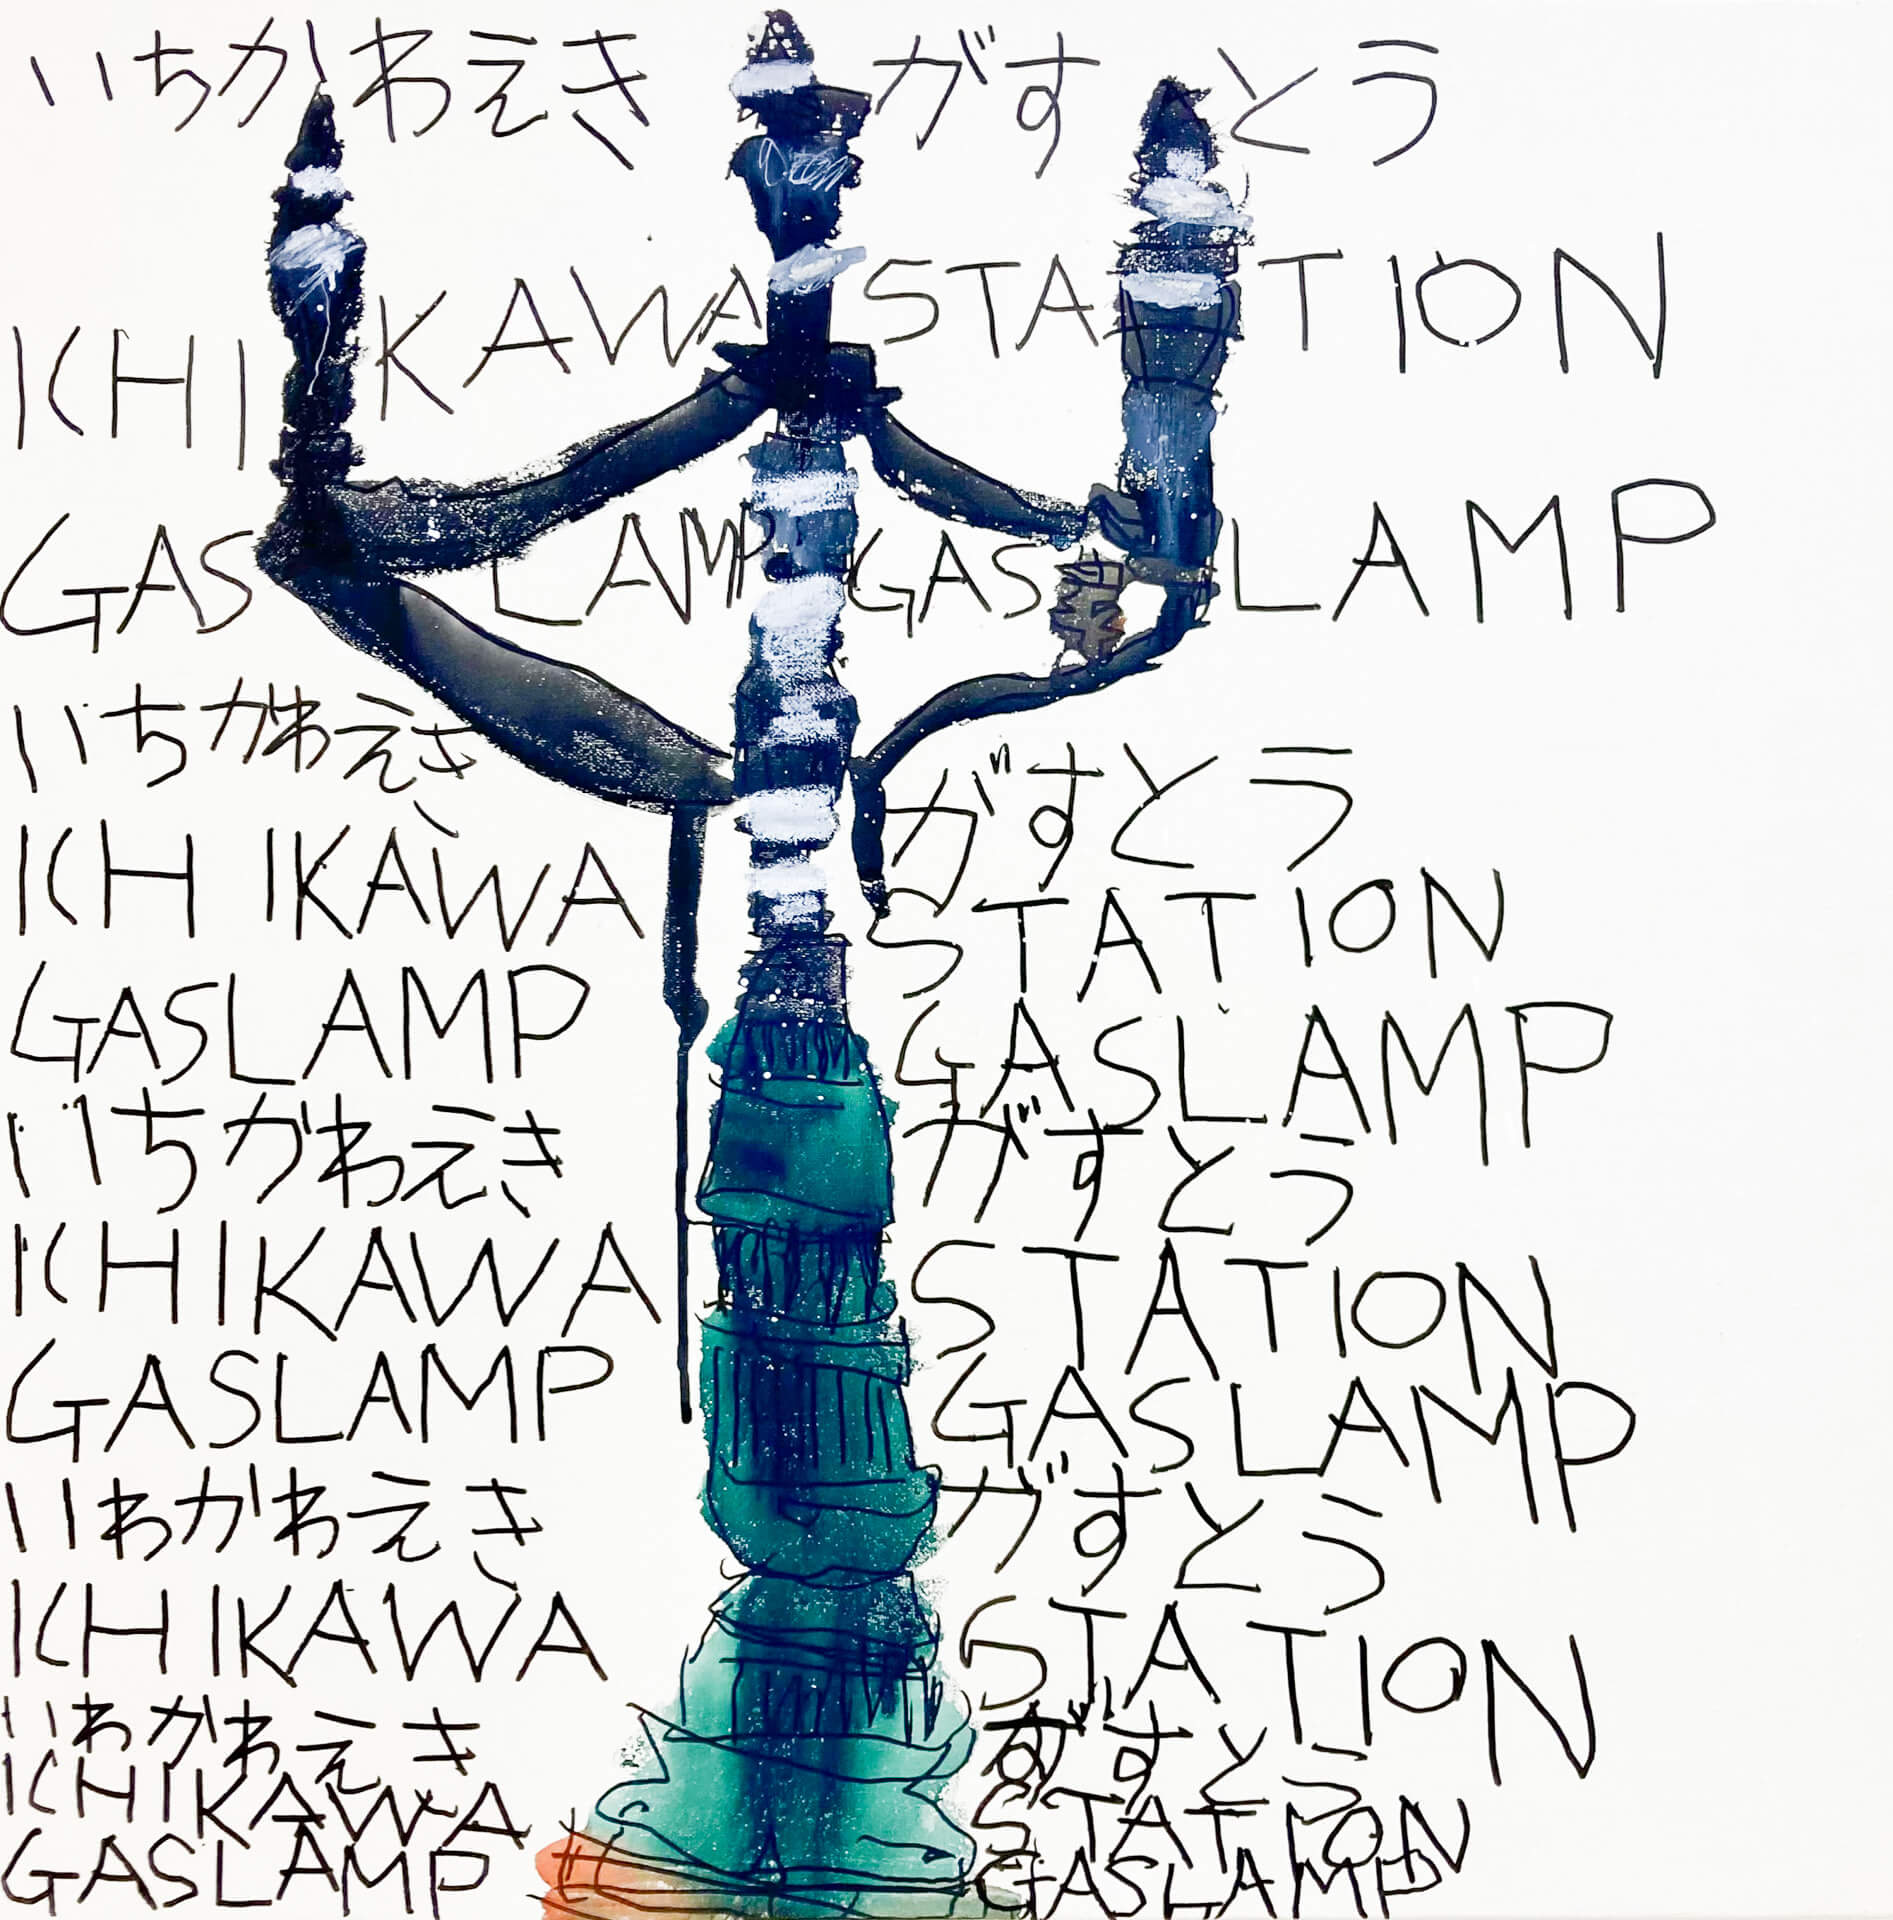 いちかわえき がすとう
ICHIKAWA STATION
GAS LAMP GAS LAMP
いちかわえき がすとう
ICHIKAWA STATION
GASLAMP GASLAMP
いちかわえき がすとう
ICHIKAWA STATION
GASLAMP GASLAMP
いわかわえき がすとう
ICHIKAWA STATION
いわかわえき がすとう
ICHIKAWA STATION
GASLAMP GASLAMP